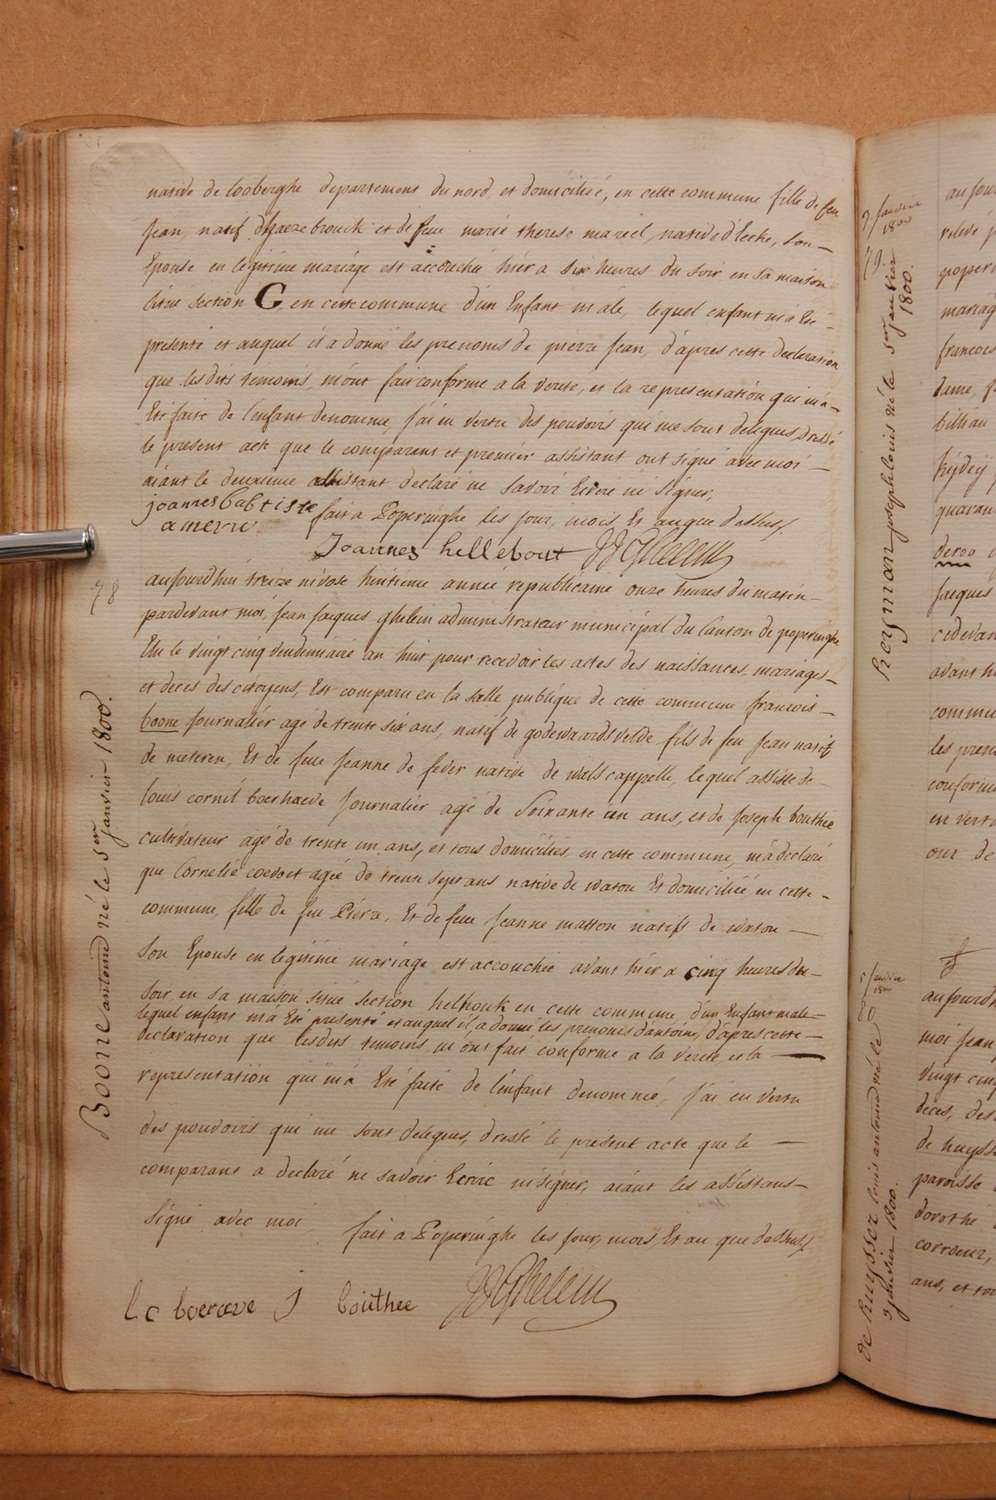 native de looberghe departement du nord et domiciliée, en cette commune fille de feu
Jean, natif d'hazebrouck et de feue marie therese mareel, native d'lecke, son —
Epouse en legitime mariage est accouchée hier a six heures du soir en sa maison
situé section G en cette commune d'un Enfant male, lequel enfant m'a Eté -
presenté et auquel il a donné les prenoms de pierre Jean, d'apres cette declaration
que lesdits temoins, m'ont fait conforme a la verité, et la representation qui m'a -
Eté faite de l'enfant denommé, j'ai en vertu des pouvoirs qui me sont delegués dressé
le present acte que le comparant et premier assistant ont signé avec moi —
aiant le deuxieme assistant declaré ne savoir Ecrire ni signer,
joannes babtiste
fait a Poperinghe les jour, mois Et an que dessus
Joannes hillebout JJ Ghelein
78
aujourd'hui treize nivose huitieme année republicaine onze heures du matin -
pardevant moi, Jean Jacques ghelein administrateur municipal du Canton de poperinghe
Elu le vingt cinq vendemiaire an huit pour recevoir les actes des naissances, mariages -
et deces des citoyens, Est comparu en la salle publique de cette commune francois —
boone Journalier agé de trente six ans, natif de godewaersvelde fils de feu Jean natif
de meteren, Et de feue Jeanne de fever native de walscappelle, lequel assisté de -
louis cornil boerhaeve Journalier agé de Soixante un ans, et de Joseph bouthee
cultivateur agé de trente un ans, et tous domiciliés en cette commune, m'a declaré
que Cornelie coevoet agée de trente sept ans native de watou Et domiciliée en cette -
commune, fille de feu Piere, Et de feue Jeanne matton natifs de watou —
Son Epouse en legitime mariage est accouchée avant hier a cinq heures du -
soir en sa maison situé section helhouk en cette commune, d'un Enfant male -
lequel enfant m'a Eté presenté et auquel il a donné les prenoms d'antoine, d'apres cette -
declaration que lesdits temoins m'ont fait conforme a la verité et la —
representation qui m'a Eté faite de l'enfant denommé, j'ai en vertu
des pouvoirs qui me sont delegués, dressé le present acte que le —
comparant a declaré ne savoir Ecrire ni signer, aiant les assistans -
signé avec moi
fait a Poperinghe les jour, mois Et an que dessus
l c boerave J bouthee JJ Ghelein
Boone antoine né le 3 en janvier 1800.
9 Janvier
1800
79.
heijman joseph louis né le 5 en janvier
1800.
aujour
mariag
francois
quaran
Jacques
cidevan
avant h
commu
les pren
conform
en vert
80
de huysser louis antoine né le
3 janvier 1800.
aujourd'h
moi jean
vingt cinq
deces, des
de huysse
paroisse
dorothé
ans, et to